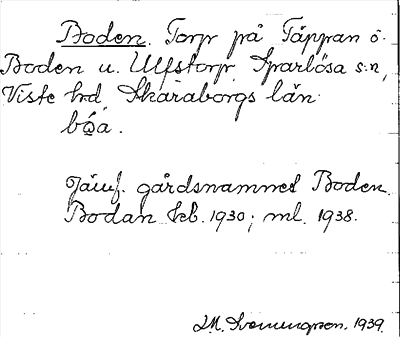 Boden. Torp på Täppan o.
Boden u. Ulfstorp, Sparlösa s:n,
Viste hd, Skaraborgs län.
bǫ́a.
Jämf. gårdsnamnet Boden.
Bodan Jeb. 1930; ml. 1938.
1939.